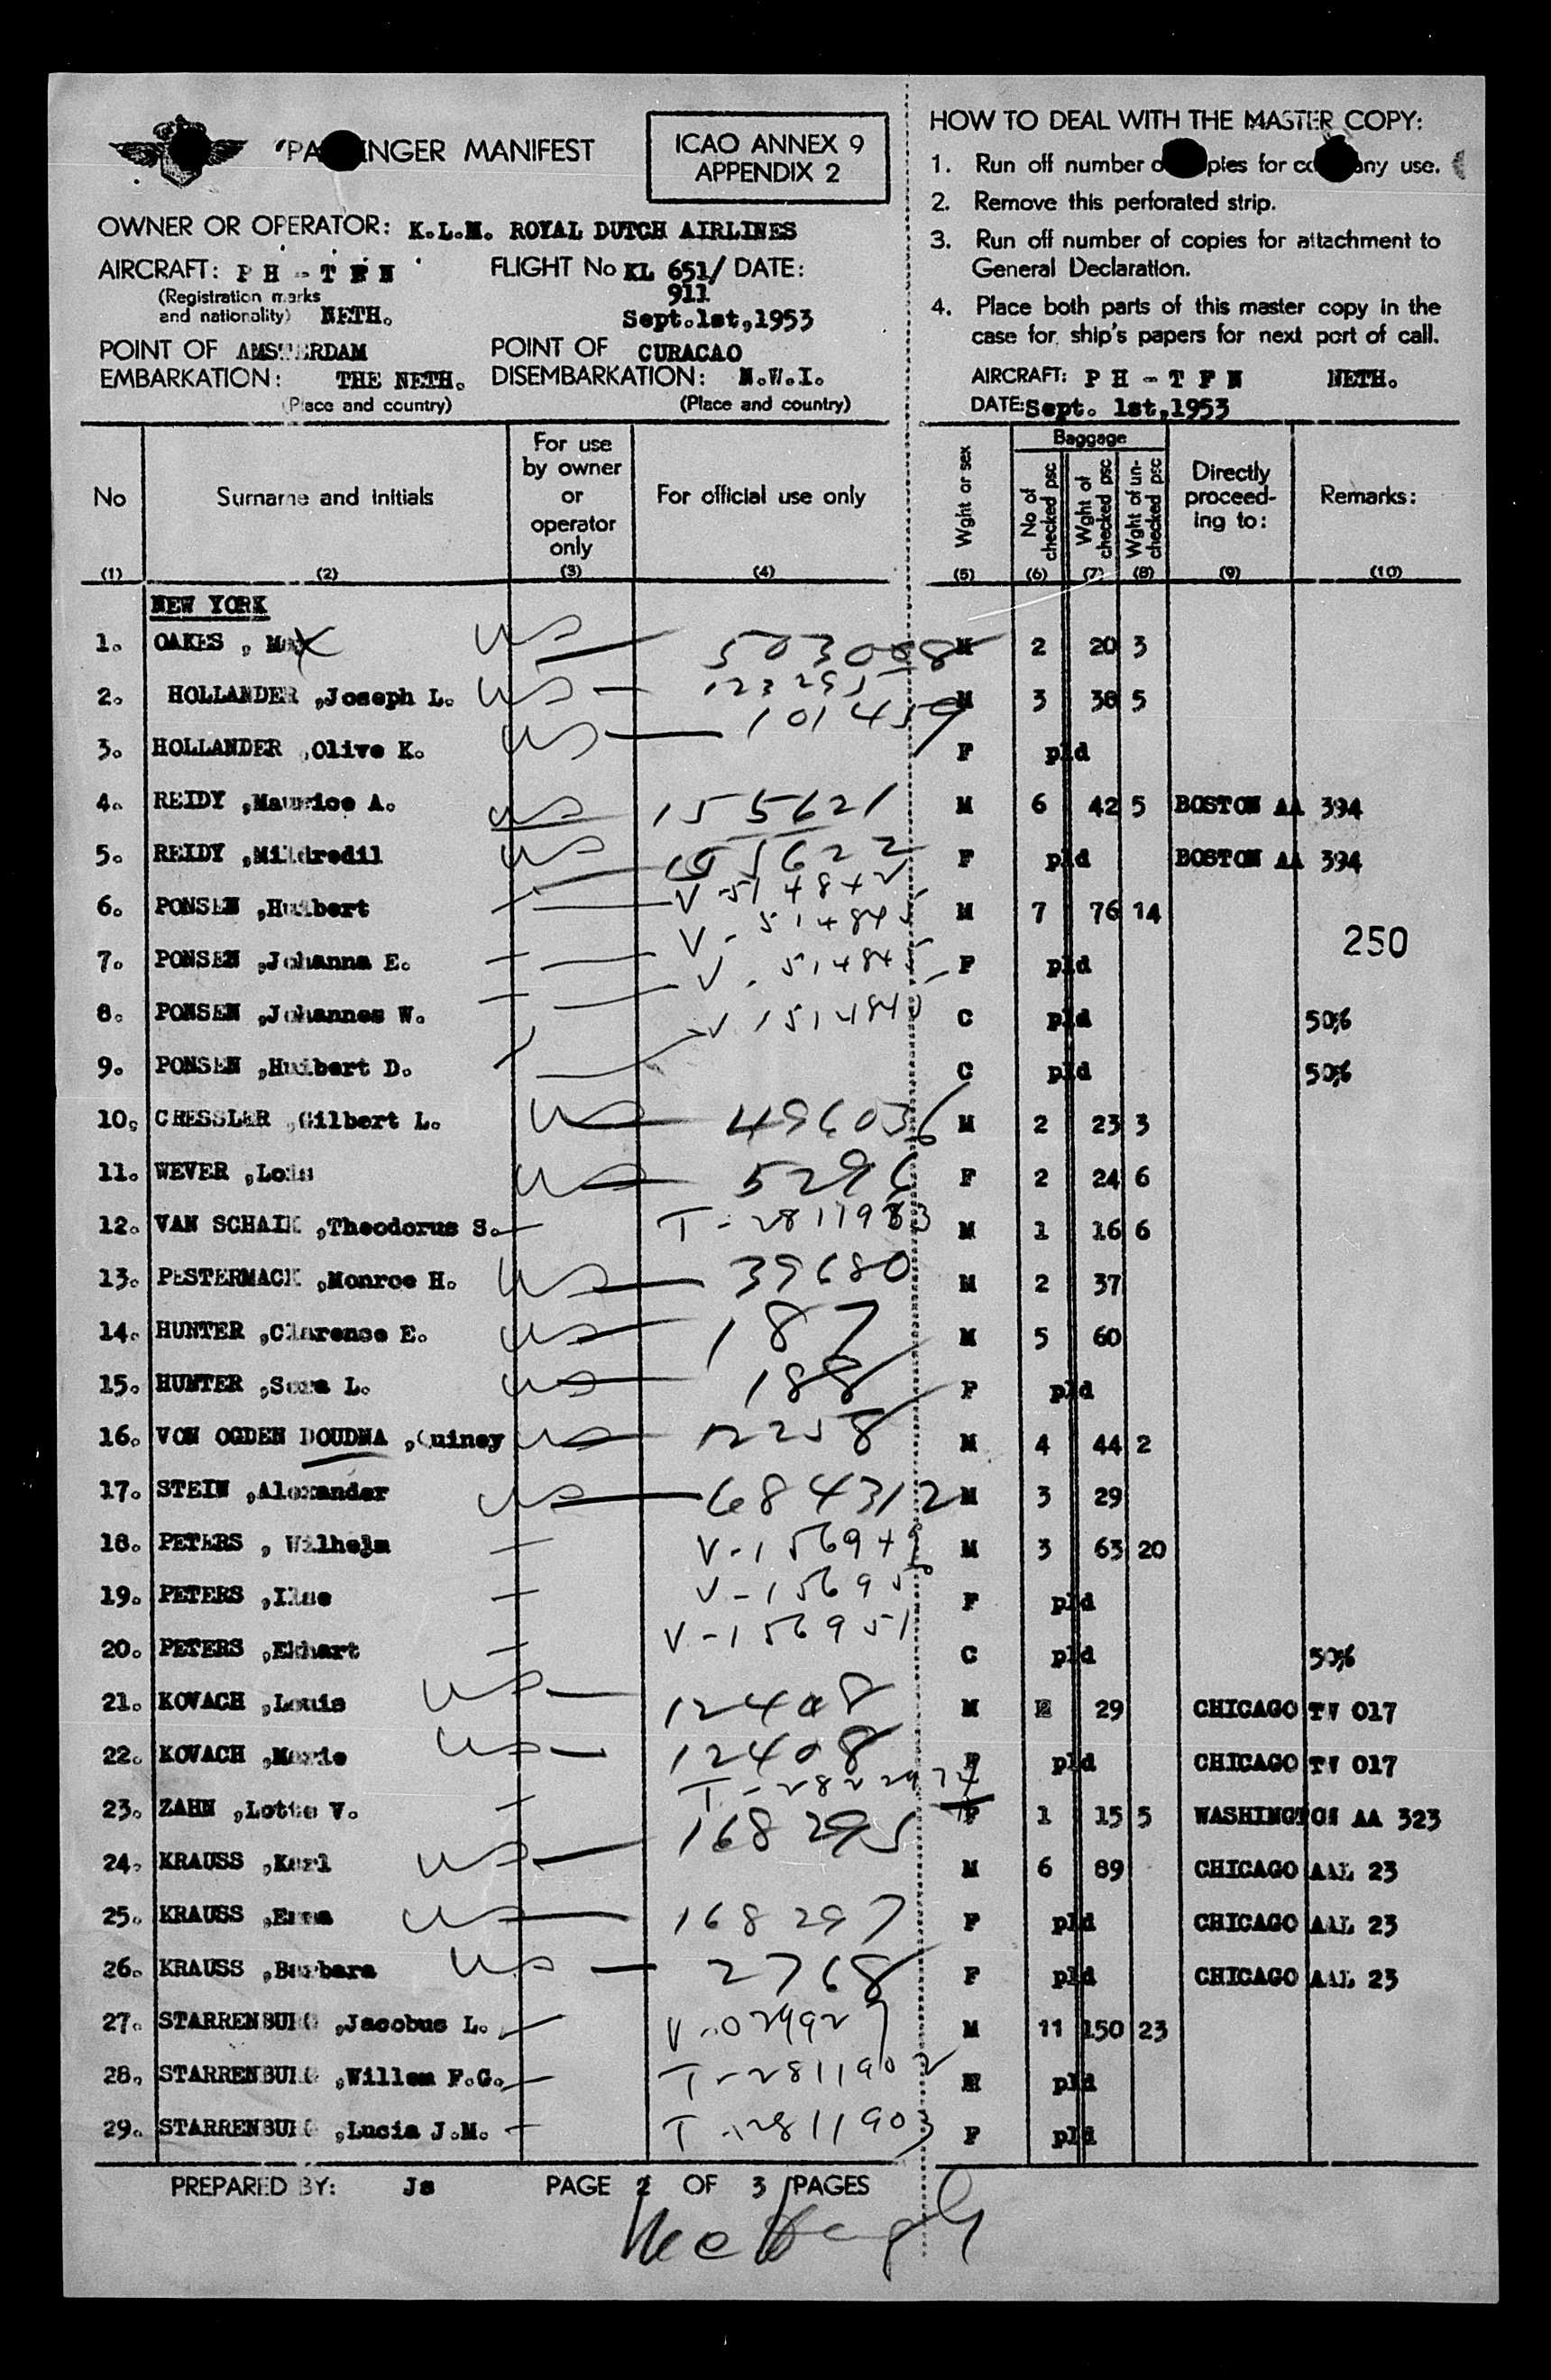 PA INGER MANIFEST
ICAO ANNEX 9
APPENDIX 2
OWNER OR OPERATOR: K.L.M. ROYAL DUTCH AIRLINES
AIRCRAFT: P H - T F N
(Registration marks
and nationality) NETH.
FLIGHT No KL 651/ DATE:
911
Sept.1st,1953
POINT OF AMSTERDAM
EMBARKATION: THE NETH.
(Place and country)
POINT OF CURACAO
DISEMBARKATION: N.W.I.
(Place and country)
HOW TO DEAL WITH THE MASTER COPY:
1. Run off number of copies for company use.
2. Remove this perforated strip.
3. Run off number of copies for attachment to
General Declaration.
4. Place both parts of this master copy in the
case for ship's papers for next port of call.
AIRCRAFT: P H - T F N NETH.
DATE: Sept. 1st,1953
No
Surname and Initials
For use
by owner
or
operator
only
For official use only
Wght or sex
Baggage
No of
checked psc
Wght of
checked psc
Wght of un-
checked psc
Directly
proceed-
ing to:
Remarks:
(1) (2) (3) (4) (5) (6) (7) (8) (9) (10)
NEW YORK
1. OAKES , Max US 503008 M 2 20 3
2. HOLLANDER ,Joseph L. US M 3 38 5
3. HOLLANDER ,Olive K. US F pld
4. REIDY ,Maurice A. US 155621 M 6 42 5 BOSTON AA 394
5. REIDY ,Mildredil US 155622 F pld BOSTON AA 394
6. PONSEN ,Huibert M 7 76 14
250
7. PONSEN ,Johanna E. F pld
8. PONSEN ,Johannes W. C pld 50%
9. PONSEN ,Huibert D. C pld 50%
10. CRESSLER ,Gilbert L. US 496036 M 2 23 3
11. WEVER ,Lois US 5296 F 2 24 6
12. VAN SCHAIK ,Theodorus S. T-2811983 M 1 16 6
13. PESTERMACK ,Monroe H. US 39680 M 2 37
14. HUNTER ,Clarence E. US 187 M 5 60
15. HUNTER ,Sara L. US 188 F pld
16. VON OGDEN DOUDNA ,Quincy US 12258 M 4 44 2
17. STEIN ,Alexander US 684312 M 3 29
18. PETERS , Wilhelm V-156949 M 3 63 20
19. PETERS ,Ilse F pld
20. PETERS ,Ekhart V-156951 C pld 50%
21. KOVACH ,Louis US 12408 M 29 CHICAGO TW 017
22. KOVACH ,Marie US 12408 F pld CHICAGO TW 017
23. ZAHN ,Lotte V. F 1 15 5 WASHINGTON AA 323
24. KRAUSS ,Karl US 168295 M 6 89 CHICAGO AAL 23
25. KRAUSS ,Erna US 168297 F pld CHICAGO AAL 23
26. KRAUSS ,Barbara US 2768 F pld CHICAGO AAL 23
27. STARRENBURG ,Jacobus L. V-029927 M 11 150 23
28. STARRENBURG ,Willem F.G. T-2811902 pld
29. STARRENBURG ,Lucia J.M. T-2811903 F pld
PREPARED BY: Js PAGE 2 OF 3 PAGES